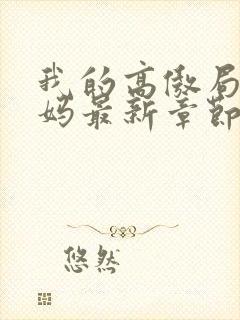 我的高傲局
妈最新章节
悠然